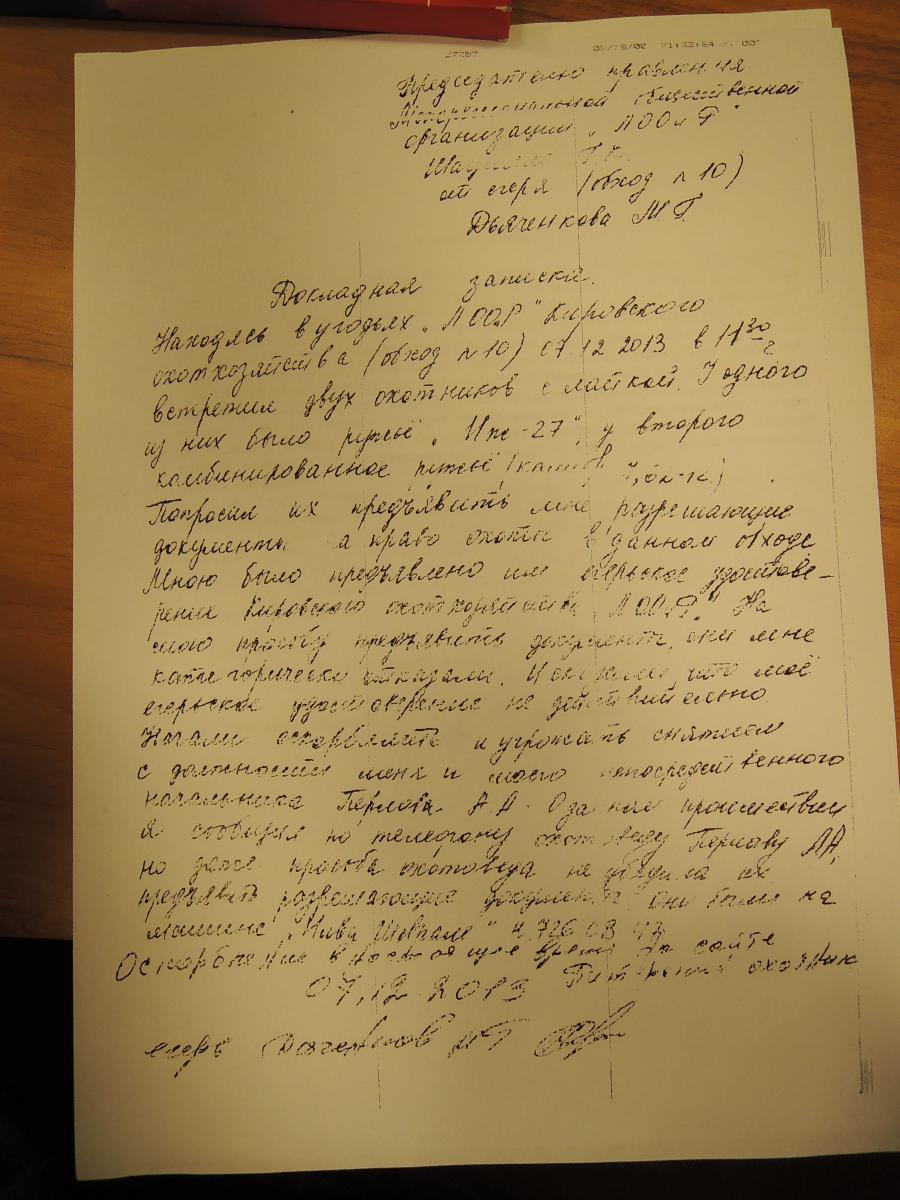 27287
Председателю правления
Межрегиональной общественной
организации „ЛООиР"
от егеря (обход n 10)
Дьяченкова М.Г.
Докладная записка.
Находясь в угодьях „ЛООиР" Кировского
охотхозяйства (обход n 10) 07.12 2013 в 11 30
встретил двух охотников с лайкой. У одного
из них было ружьё „Иж-27", у второго
комбинированное ружьё
Попросил их предъявить мне разрешающие
документы на право охоты в данном обходе
Мною было предъявлено им егерьское удостове-
рение Кировского охотхозяйства „ЛООиР". На
мою просьбу предъявить документы, они мне
категорически отказали. И сказали, что моё
егерьское удостоверение не действительно.
Начали оскорблять и угрожать снятием
с должности меня и моего непосредственного
начальника Пернова А.А. О данном происшествии
я сообщил по телефону охотоведу Пернову АА,
но даже просьба охотоведа не убедила их
предъявить разрешающие документы они были на
машине „Нива Шевроле" 726 47
Оскорбление в настоящее время на сайте
07.12 2013 Питерский охотник
егерь Дьяченков МГ